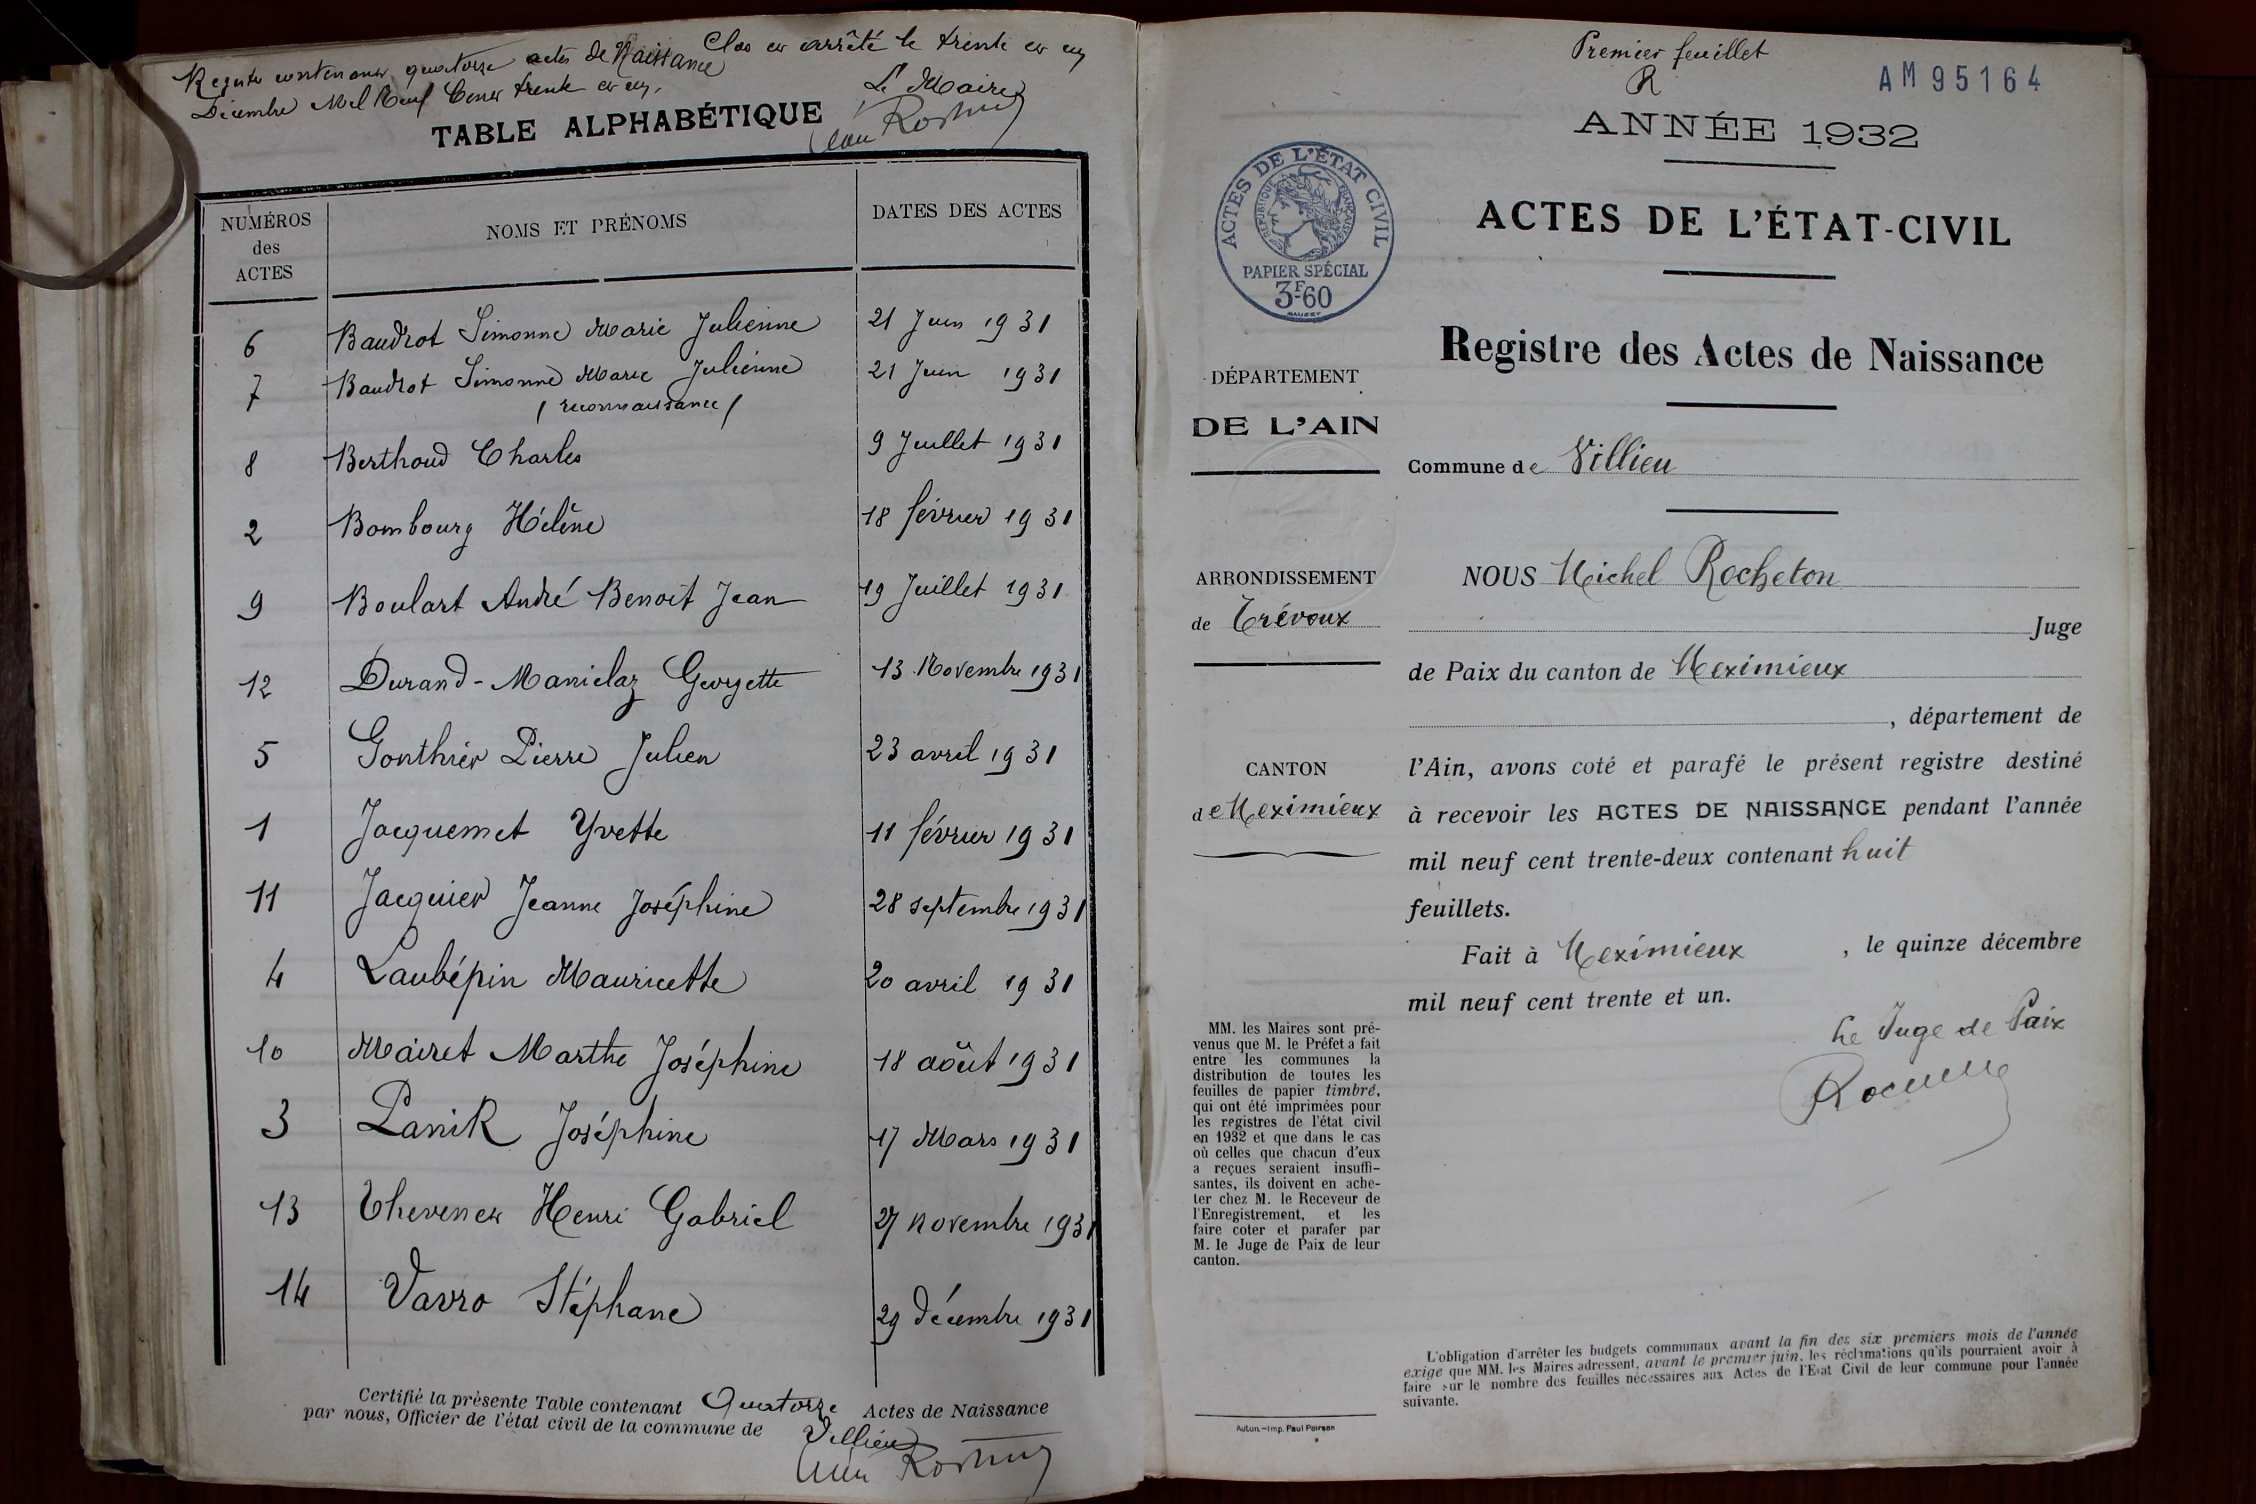 Registre contenant quatorze actes de Naissance Clos et arrêté le trente et un
Décembre Mil Neuf Cent trente et un.
Le Maire
TABLE ALPHABÉTIQUE
NUMÉROS des ACTES NOMS ET PRÉNOMS DATES DES ACTES
6 Baudrot Simonne Marie Julienne 21 Juin 1931
7 Baudrot Simonne Marie Julienne 21 Juin 1931
(reconnaissance)
8 Berthoud Charles 9 Juillet 1931
2 Bombourg Hélène 18 février 1931
9 Boulart André Benoit Jean 19 Juillet 1931
12 Durand-Maniclaz Georgette 13 Novembre 1931
5 Gonthier Pierre Julien 23 avril 1931
1 Jacquemet Yvette 11 février 1931
11 Jacquier Jeanne Joséphine 28 septembre 1931
4 Laubépin Mauricette 20 avril 1931
10 Mairet Marthe Joséphine 18 août 1931
3 Panik Joséphine 17 Mars 1931
13 Thevenet Henri Gabriel 27 novembre 1931
14 Vavro Stéphane 29 décembre 1931
Certifié la présente Table contenant Quatorze Actes de Naissance
par nous, Officier de l'état civil de la commune de Villieu
Premier feuillet
R
AM 95164
ANNÉE 1932
ACTES DE L'ÉTAT CIVIL
RÉPUBLIQUE FRANÇAISE
PAPIER SPÉCIAL
3F60
ACTES DE L'ÉTAT-CIVIL
Registre des Actes de Naissance
DÉPARTEMENT
DE L'AIN
Commune de Villieu
ARRONDISSEMENT
de Trévoux
CANTON
de Meximieux
NOUS Michel Rocheton
Juge
de Paix du canton de Meximieux
, département de
l'Ain, avons coté et parafé le présent registre destiné
à recevoir les ACTES DE NAISSANCE pendant l'année
mil neuf cent trente-deux contenant huit
feuillets.
Fait à Meximieux , le quinze décembre
mil neuf cent trente et un.
Le Juge de Paix
MM. les Maires sont pré-
venus que M. le Préfet a fait
entre les communes la
distribution de toutes les
feuilles de papier timbré,
qui ont été imprimées pour
les registres de l'état civil
en 1932 et que dans le cas
où celles que chacun d'eux
a reçues seraient insuffi-
santes, ils doivent en ache-
ter chez M. le Receveur de
l'Enregistrement, et les
faire coter et parafer par
M. le Juge de Paix de leur
canton.
L'obligation d'arrêter les budgets communaux avant la fin des six premiers mois de l'année
exige que MM. les Maires adressent, avant le premier juin, les réclamations qu'ils pourraient avoir à
faire sur le nombre des feuilles nécessaires aux Actes de l'Etat Civil de leur commune pour l'année
suivante.
Autun.—Imp. Paul Poirson